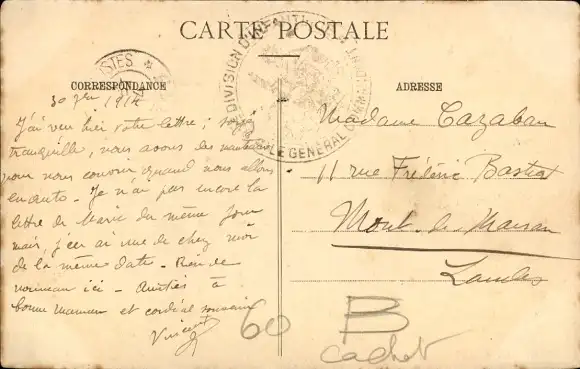 CARTE POSTALE
CORRESPONDANCE
30 1914
J'ai reçu hier votre lettre ; soyez
tranquille, nous avons des manteaux
pour nous couvrir quand nous allons
en auto. Je n'ai pas encore la
lettre de Marie du même jour
mais, j'en ai une de chez moi
de la même date. Rien de
nouveau ici. Amitiés à
bonne Maman et cordial souvenir
Vincent
ADRESSE
Madame Cazaban
11 rue Frédéric Bastiat
Mont-de-Marsan
Landes
DIVISION D'INFANTERIE
LE GENERAL COMMANDANT
POSTES
60
B
cachet